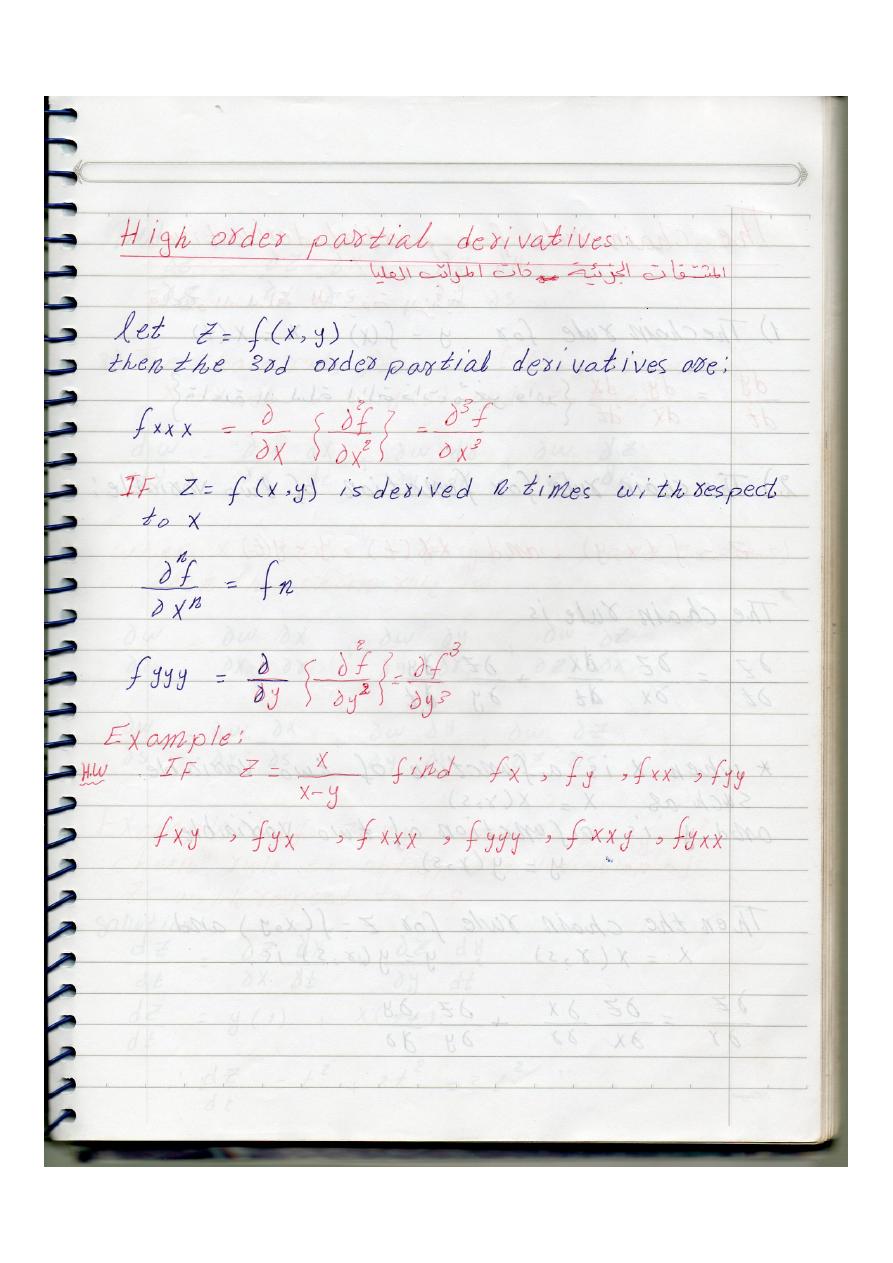 High order partial derivatives:
المشتقات الجزئية ذات المراتب العليا
let Z = f(x,y)
then the 3rd order partial derivatives are:
fxxx = ∂/∂x {∂²f/∂x²} = ∂³f/∂x³
IF Z = f(x,y) is derived n times with respect
to x
∂ⁿf/∂xⁿ = fn
fyyy = ∂/∂y {∂²f/∂y²} = ∂f³/∂y³
Example:
H.W IF Z = x/x-y find fx, fy, fxx, fyy
fxy, fyx, fxxx, fyyy, fxxy, fyxx